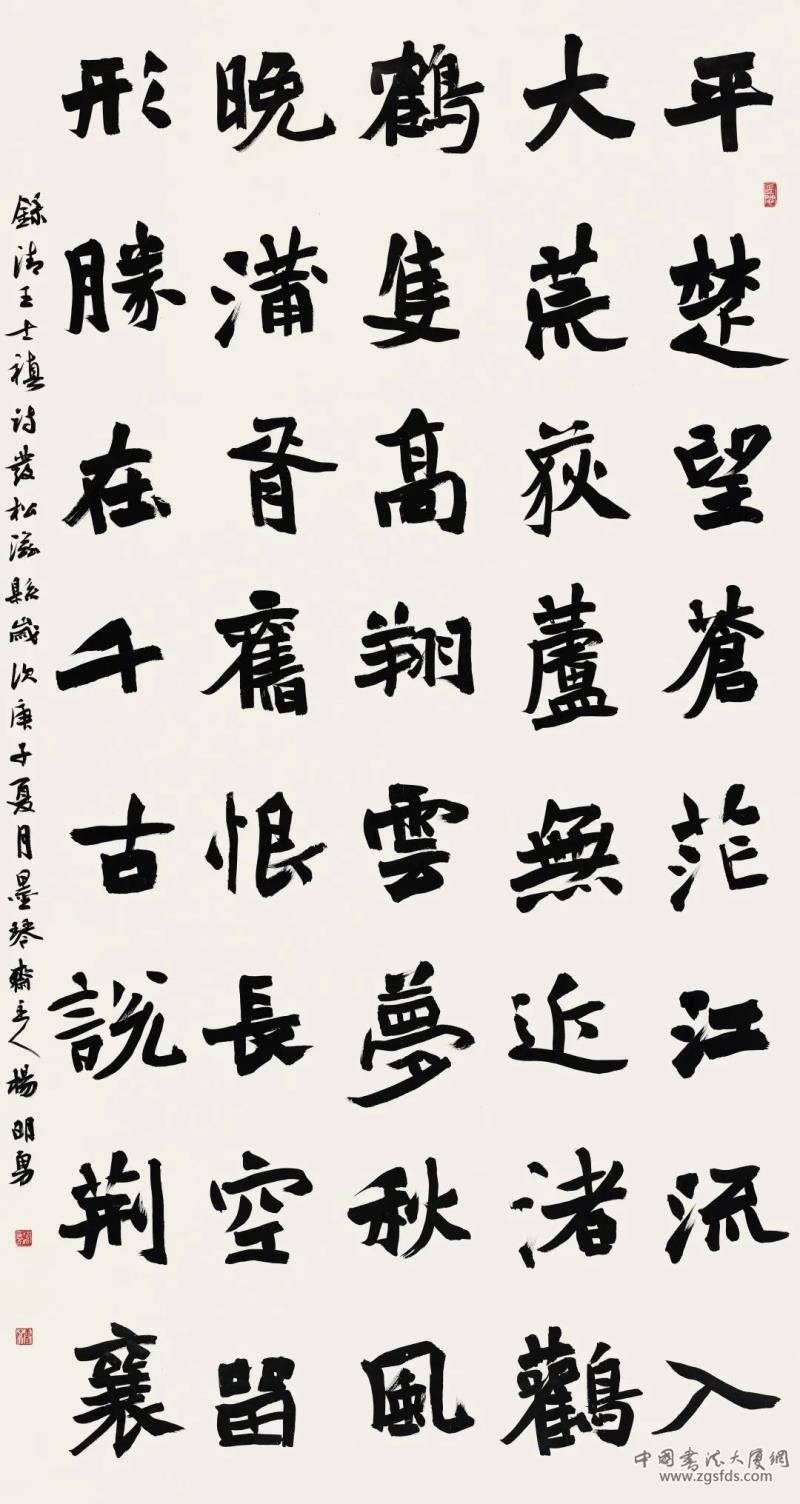 平楚望蒼茫江流入
大荒荻蘆無近渚鸛
鶴隻高翔雲夢秋風
晚蒲胥舊恨長空留
形勝在千古說荊襄
錄清王士禛詩發松滋縣歲次庚子夏月墨琴齋主人楊明勇
中国书法大厦網
www.zgsfds.com